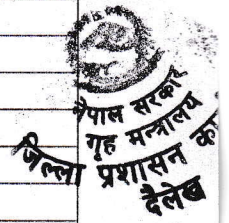 नेपाल सरकार
गृह मन्त्रालय
जिल्ला प्रशासन का
दैलेख